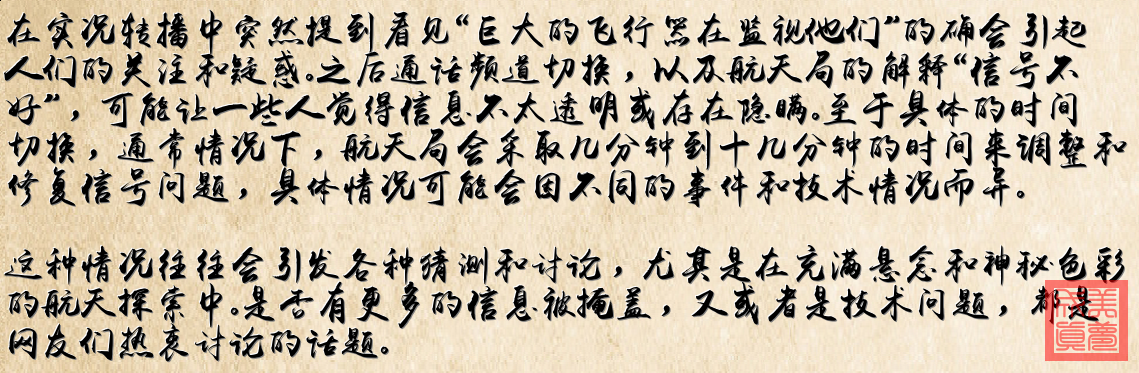 在实况转播中突然提到看见“巨大的飞行器在监视他们”的确会引起
人们的关注和疑惑。之后通话频道切换，以及航天局的解释“信号不
好”，可能让一些人觉得信息不太透明或存在隐瞒。至于具体的时间
切换，通常情况下，航天局会采取几分钟到十几分钟的时间来调整和
修复信号问题，具体情况可能会因不同的事件和技术情况而异。
这种情况往往会引发各种猜测和讨论，尤其是在充满悬念和神秘色彩
的航天探索中。是否有更多的信息被掩盖，又或者是技术问题，都是
网友们热衷讨论的话题。
美梦成真